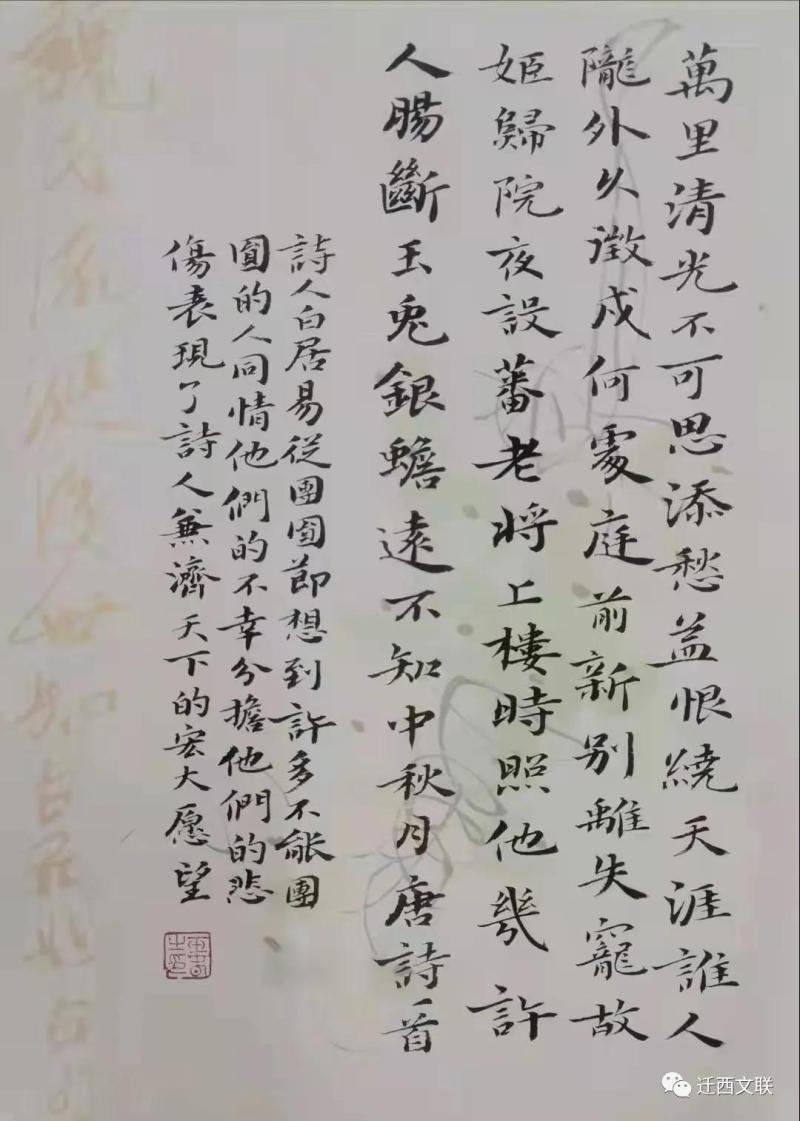 萬里清光不可思添愁益恨繞天涯誰人
隴外久徵戍何處庭前新别離失寵故
姬歸院夜設蕃老將上樓時照他幾許
人腸斷玉兔銀蟾遠不知中秋月唐詩一首
詩人白居易從團圓節想到許多不能團
圓的人同情他們的不幸分擔他們的悲
傷表現了詩人兼濟天下的宏大愿望
迁西文联